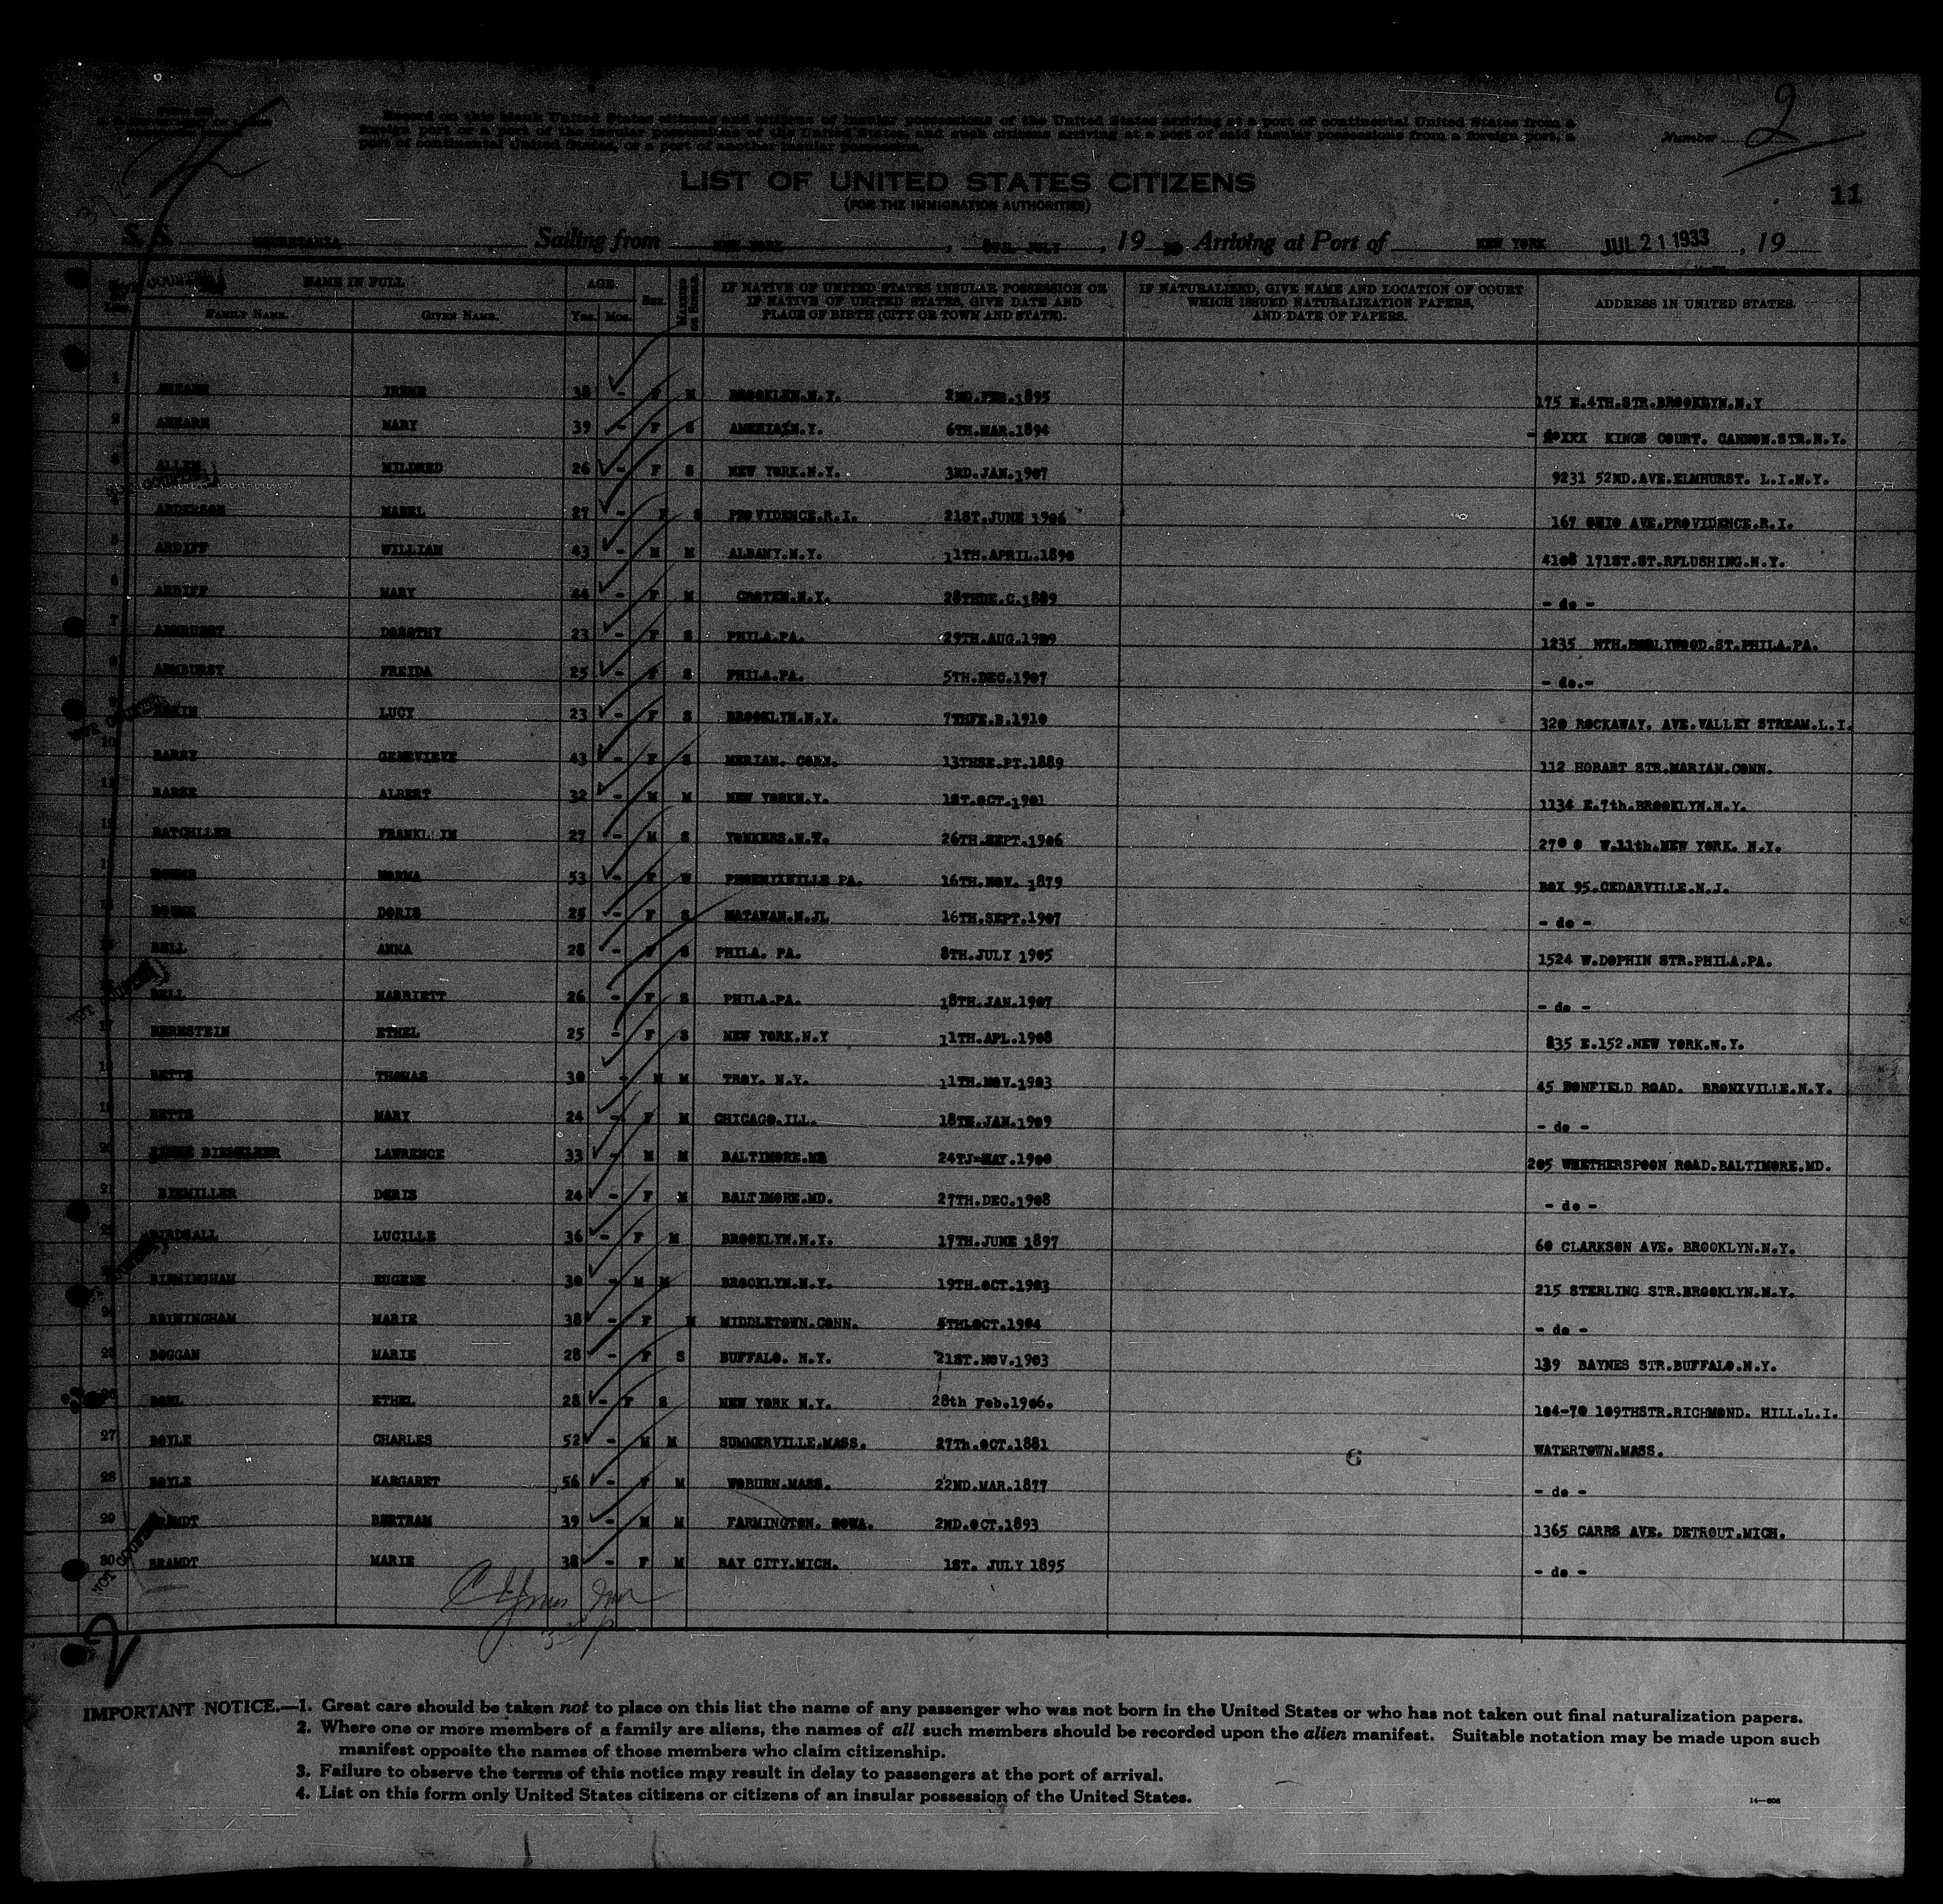 Record on this blank United States citizens and citizens of insular possessions of the United States arriving at a port of continental United States from a
foreign port or a port of the insular possessions of the United States, and such citizens arriving at a port of said insular possessions from a foreign port, a
port of continental United States, or a port of another insular possession.
Number 2
LIST OF UNITED STATES CITIZENS
(FOR THE IMMIGRATION AUTHORITIES)
11
S. S. MAURETANIA Sailing from NEW YORK, JULY, 19 Arriving at Port of NEW YORK JUL 21 1933, 19
NAME IN FULL AGE. Sex. MARRIED OR SINGLE. IF NATIVE OF UNITED STATES INSULAR POSSESSION OR IF NATIVE OF UNITED STATES, GIVE DATE AND PLACE OF BIRTH (CITY OR TOWN AND STATE). IF NATURALIZED, GIVE NAME AND LOCATION OF COURT WHICH ISSUED NATURALIZATION PAPERS, AND DATE OF PAPERS. ADDRESS IN UNITED STATES.
FAMILY NAME. GIVEN NAME. Yrs. Mos.
1 AHEARN IRENE 38 - F M BROOKLYN.N.Y. 2ND.FEB.1895 175 E.4TH.STR.BROOKLYN.N.Y
2 AHEARN MARY 39 - F S N.Y. 6TH.MAR.1894 KINGS COURT. CANNON.STR.N.Y.
3 ALLEN MILDRED 26 - F S NEW YORK.N.Y. 3RD.JAN.1907 9231 52ND.AVE.ELMHURST. L.I.N.Y.
4 ANDERSON MABEL 27 - F S PROVIDENCE.R.I. 21ST.JUNE 1906 167 OHIO AVE.PROVIDENCE.R.I.
5 ARDIFF WILLIAM 43 - M M ALBANY.N.Y. 11TH.APRIL.1890 4108 171ST.ST.RFLUSHING.N.Y.
6 ARDIFF MARY 44 - F M GROTEN.N.Y. 28THDE.C.1889 - do -
7 DOROTHY 23 - F S PHILA.PA. 29TH.AUG.1909 1235 NTH. ST.PHILA.PA.
8 ARMBURST FREIDA 25 - F S PHILA.PA. 5TH.DEC.1907 - do.-
9 LUCY 23 - F S BROOKLYN.N.Y. 7THFE.B.1910 320 ROCKAWAY. AVE.VALLEY STREAM.L.I.
10 BARRY GENEVIEVE 43 - F S MERIAN. CONN. 13THSE.PT.1889 112 HOBART STR.MARIAN.CONN.
11 BARSE ALBERT 32 - M M NEW YORKN.Y. 1ST.OCT.1901 1134 E.7th.BROOKLYN.N.Y.
12 BATCHLLER FRANKLIN 27 - M S YONKERS.N.Y. 26TH.SEPT.1906 270 0 W.11th.NEW YORK. N.Y.
13 NORMA 53 - F W PHOENIXVILLE PA. 16TH.NOV. 1879 BOX 95.CEDARVILLE.N.J.
14 DORIS 25 - F S MATAWAN.N.JL 16TH.SEPT.1907 - do -
15 BELL ANNA 28 - F S PHILA. PA. 8TH.JULY 1905 1524 W.DOPHIN STR.PHILA.PA.
16 BELL HARRIETT 26 - F S PHILA.PA. 18TH.JAN.1907 - do -
17 BERNSTEIN ETHEL 25 - F S NEW YORK.N.Y 11TH.APL.1908 835 E.152.NEW YORK.N.Y.
18 BETTS THOMAS 30 - M M TROY. N.Y. 11TH.NOV.1903 45 BONFIELD ROAD. BRONXVILLE.N.Y.
19 BETTS MARY 24 - F M CHICAGO.ILL. 18TH.JAN.1909 - do -
20 LAWRENCE 33 - M M BALTIMORE.MD 24TJ=MAY.1900 205 WHETHERSPOON ROAD.BALTIMORE.MD.
21 BIEMILLER DORIS 24 - F M BALTIMORE.MD. 27TH.DEC.1908 - do -
22 BIRDSALL LUCILLE 36 - F M BROOKLYN.N.Y. 17TH.JUNE 1897 60 CLARKSON AVE. BROOKLYN.N.Y.
23 BIRMINGHAM EUGENE 30 - M M BROOKLYN.N.Y. 19TH.OCT.1903 215 STERLING STR.BROOKLYN.N.Y.
24 BRIMINGHAM MARIE 38 - F M MIDDLETOWN.CONN. OCT.1904 - do -
25 BOGGAN MARIE 28 - F S BUFFALO. N.Y. 21ST.NOV.1903 139 BAYNES STR.BUFFALO.N.Y.
26 ETHEL 28 - F S NEW YORK N.Y. 28th Feb.1906. 104-70 109THSTR.RICHMOND. HILL.L.I.
27 BOYLE CHARLES 52 - M M SUMMERVILLE.MASS. 27Th.OCT.1881 6 WATERTOWN.MASS.
28 BOYLE MARGARET 56 - F M WOBURN.MASS. 22ND.MAR.1877 - do -
29 BRAMDT BERTRAM 39 - M M FARMINGTON. IOWA. 2ND.OCT.1893 1365 CARRS AVE. DETROUT.MICH.
30 BRAMDT MARIE 38 - F M BAY CITY.MICH. 1ST. JULY 1895 - do -
2
IMPORTANT NOTICE.—1. Great care should be taken not to place on this list the name of any passenger who was not born in the United States or who has not taken out final naturalization papers.
2. Where one or more members of a family are aliens, the names of all such members should be recorded upon the alien manifest. Suitable notation may be made upon such
manifest opposite the names of those members who claim citizenship.
3. Failure to observe the terms of this notice may result in delay to passengers at the port of arrival.
4. List on this form only United States citizens or citizens of an insular possession of the United States.
14—808